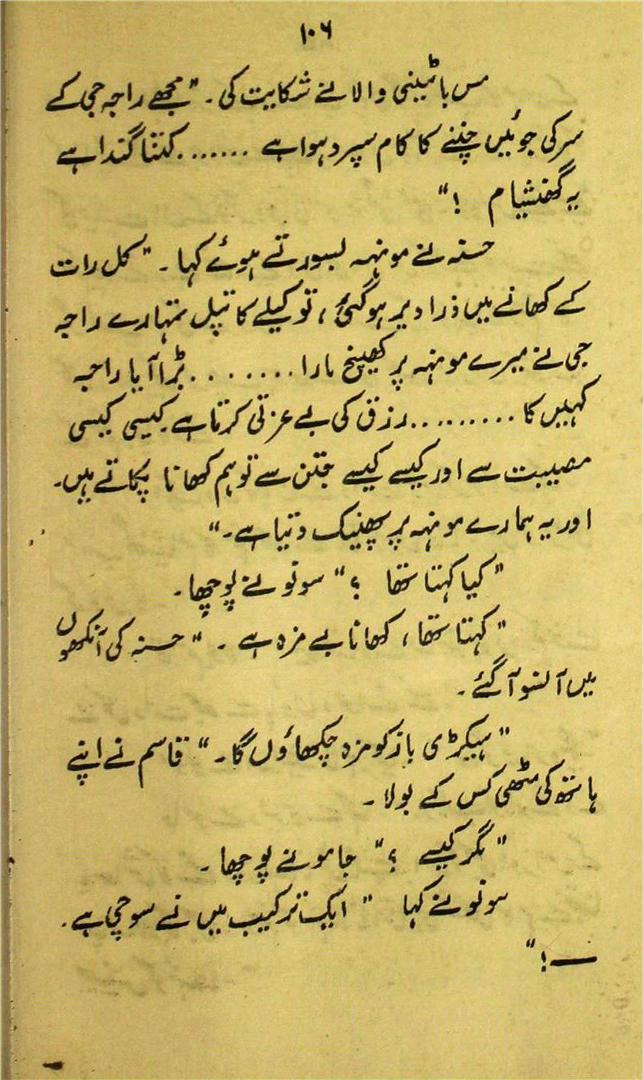 ۱۰۶
مس باٹمینی والا نے شکایت کی۔ "مجھے راجہ جی کے
سر کی جوئیں چننے کا کام سپرد ہوا ہے ....... کتنا گندا ہے
یہ گھنشیام !"
حسنہ نے مونہہ بسورتے ہوئے کہا۔ "کل رات
کے کھانے میں ذرا دیر ہو گئی، تو کیلے کا تپل تمہارے راجہ
جی نے میرے مونہہ پر کھینچ مارا ....... بڑا آیا راجہ
کہیں کا ......... رزق کی بے عزتی کرتا ہے کیسی کیسی
مصیبت سے اور کیسے کیسے جتن سے تو ہم کھانا پکاتے ہیں۔
اور یہ ہمارے مونہہ پر پھینک دیتا ہے۔"
"کیا کہتا تھا ؟" سونو نے پوچھا۔
"کہتا تھا، کھانا بے مزہ ہے۔" حسنہ کی آنکھوں
میں آنسو آ گئے۔
"ہیکڑی باز کو مزہ چکھاؤں گا۔" قاسم نے اپنے
ہاتھ کی مٹھی کس کے بولا۔
"مگر کیسے ؟" جامو نے پوچھا۔
سونو نے کہا "ایک ترکیب میں نے سوچی ہے۔
—!"